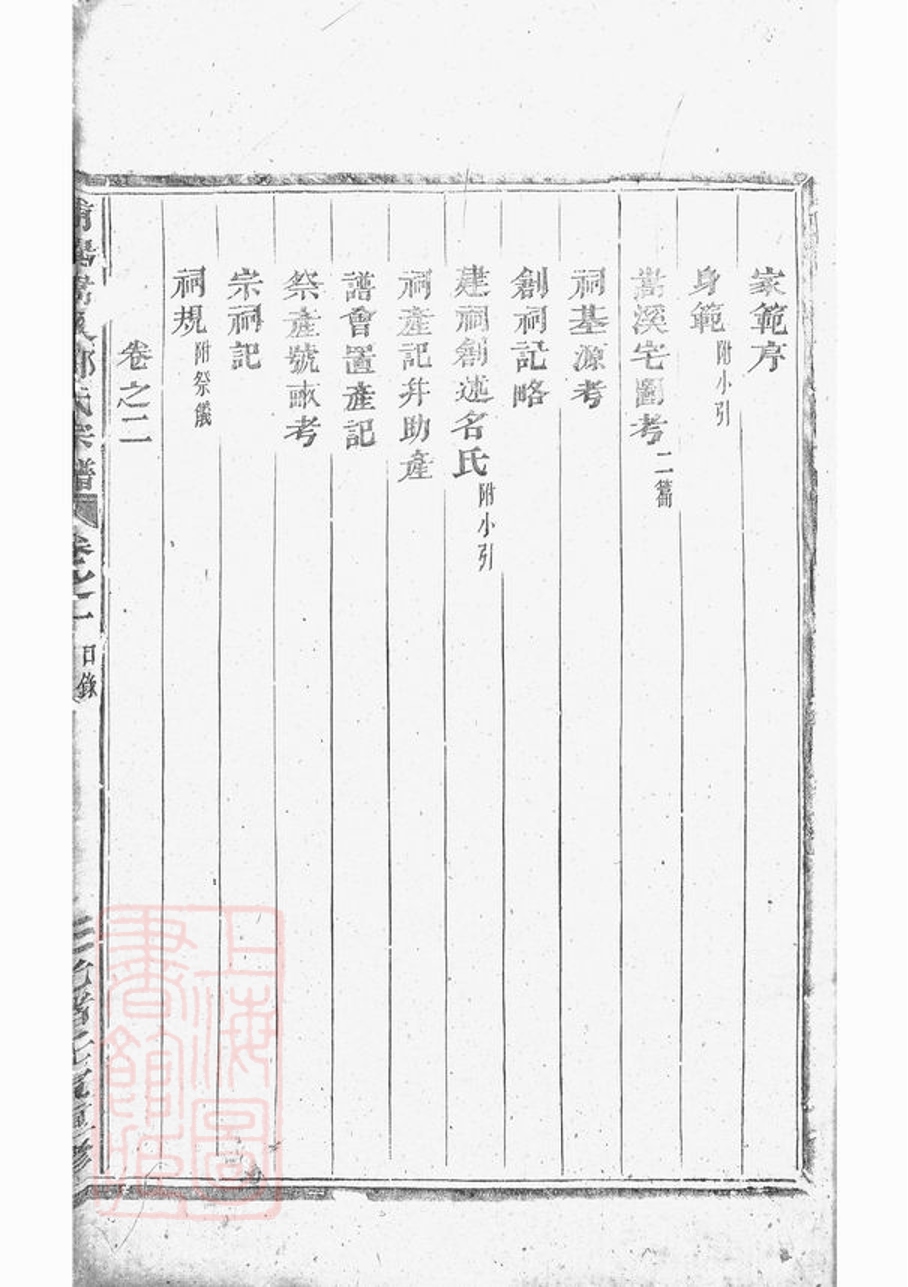 家範序
身範附小引
嵩溪宅圖考二篇
祠基源考
創祠記略
建祠創述名氏附小引
祠產記并助產
譜會置產記
祭產號畝考
宗祠記
祠規附祭儀
卷之二
氏宗譜 卷之一 目錄
上海圖書館藏